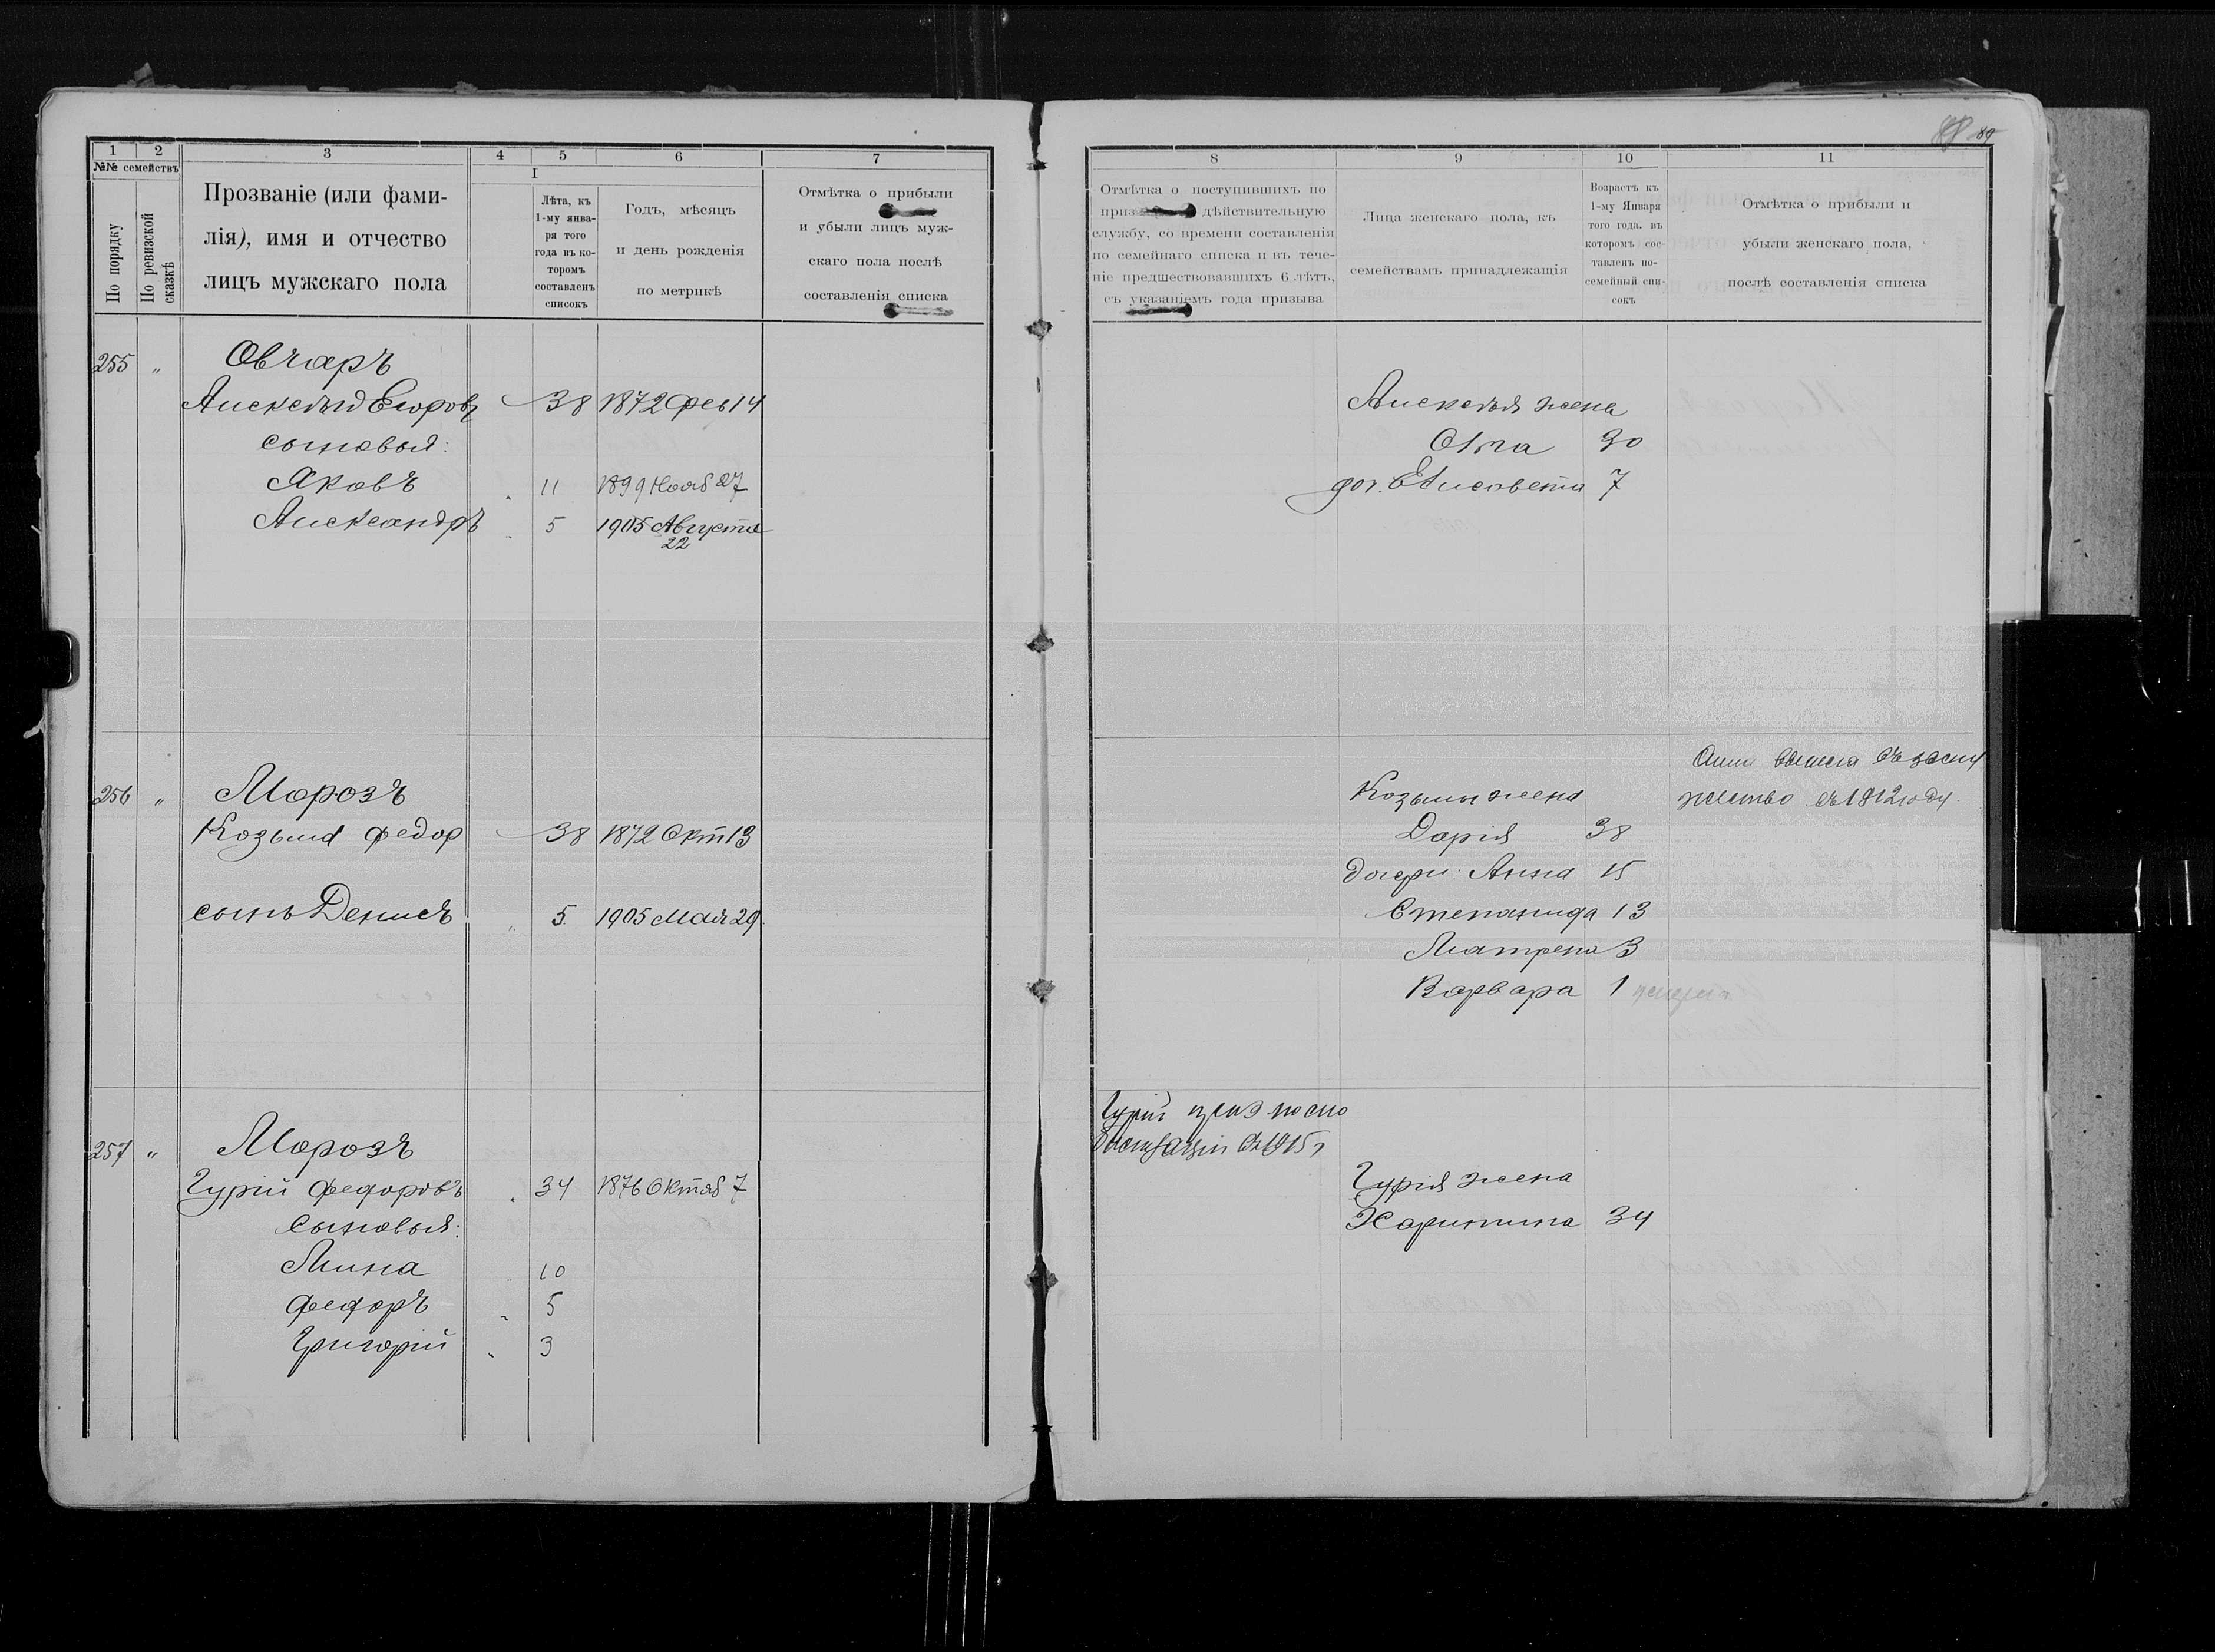 89
1 2 3 4 5 6 7
№№ семействъ
По порядку
По ревизской сказкѣ
Прозваніе (или фами-
лія), имя и отчество
лицъ мужскаго пола
I
Лѣта, къ
1-му янва-
ря того
года въ ко-
торомъ
составленъ
списокъ
Годъ, мѣсяцъ
и день рожденія
по метрикѣ
Отмѣтка о прибыли
и убыли лицъ муж-
скаго пола послѣ
составленія списка
255 „ Овчаръ
Алексѣй Егоровъ 38 1872 Фев 14
сыновья:
Яковъ „ 11 1899 Нояб 27
Александръ „ 5 1905 Августа
22
256 „ Морозъ
Козьма Федор 38 1872 Окт 13
сынъ Денисъ „ 5. 1905 Мая 29.
257 „ Морозъ
Гурій Федоровъ „ 34 1876 Октяб 7
Сыновья:
Мина „ 10
Федоръ „ 5
Григорій „ 3
8 9 10 11
Отмѣтка о поступившихъ по
дѣйствительную
службу, со времени составленія
по семейнаго списка и въ тече-
ніе предшествовавшихъ 6 лѣтъ,
съ указаніемъ года призыва
Лица женскаго пола, къ
семействамъ принадлежащія
Возрастъ къ
1-му Января
того года. въ
которомъ сос-
тавленъ по-
семейный спи-
сокъ
Отмѣтка о прибыли и
убыли женскаго пола,
послѣ составленія списка
Алексѣя жена
Ольга 30
доч. Елисавета 7
Анна вышла въ заму
жество въ 1912 году.
Козьмы жена
Дарія 38
дочери: Анна 15
Степанида 13
Матрена 3
Варвара 1
Гурій приз. по мо
билизаціи въ 1915 г
Гурія жена
Харитина 34